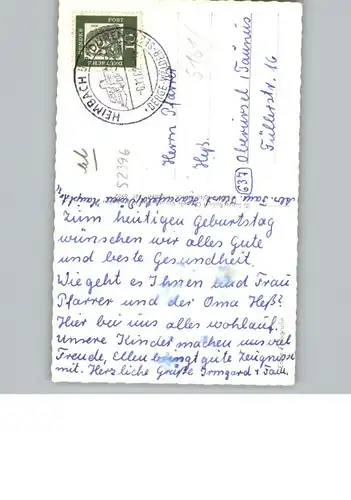 DEUTSCHE
BUNDES
POST
10
HEIMBACH
5161/1
52396
Herrn Pfarrer
Heß
637 Oberursel/Taunus
Füllerstr. 16
Zum heutigen Geburtstag
wünschen wir alles Gute
und beste Gesundheit.
Wie geht es Ihnen und Frau
Pfarrer und der Oma Heß?
Hier bei uns alles wohlauf.
Unsere Kinder machen uns viel
Freude, Ellen bringt gute Zeugnisse
mit. Herzliche Grüße Irmgard + Fam.